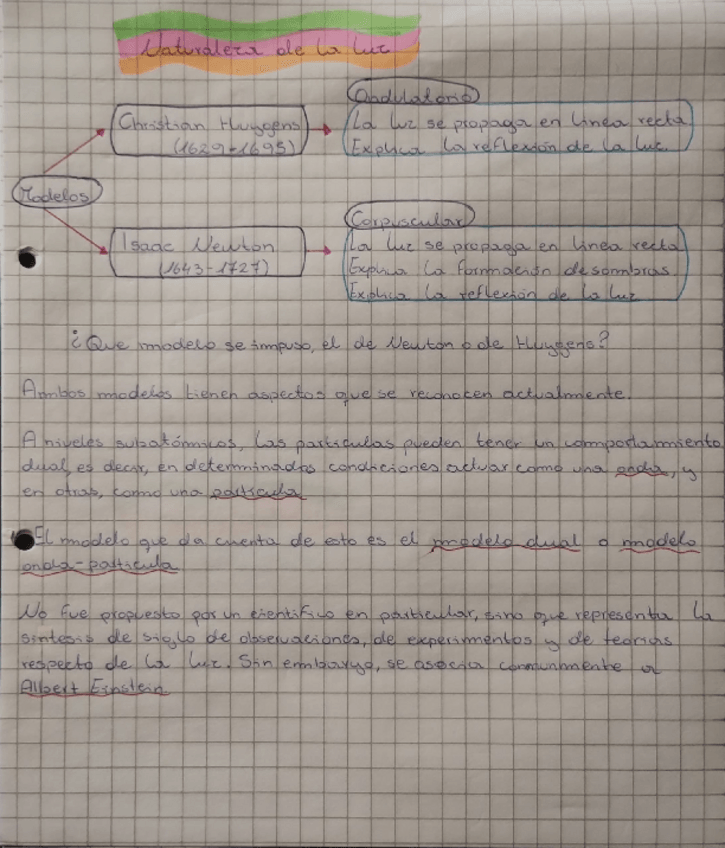 Naturaleza de la luz
Ondulatorio
Christian Huygens
(1629-1695)
La luz se propaga en línea recta
Explica la reflexión de la luz.
Modelos
Corpuscular
Isaac Newton
(1643-1727)
La luz se propaga en línea recta
Explica la formación de sombras
Explica la reflexión de la luz
¿Que modelo se impuso, el de Newton o de Huygens?
Ambos modelos tienen aspectos que se reconocen actualmente.
A niveles subatómicos, las partículas pueden tener un comportamiento
dual, es decir, en determinadas condiciones actuar como una onda, y
en otras, como una partícula
El modelo que da cuenta de esto es el modelo dual o modelo
onda-partícula
No fue propuesto por un científico en particular, sino que representa la
síntesis de siglo de observaciones, de experimentos y de teorías
respecto de la luz. Sin embargo, se asocia commúnmente a
Albert Einstein